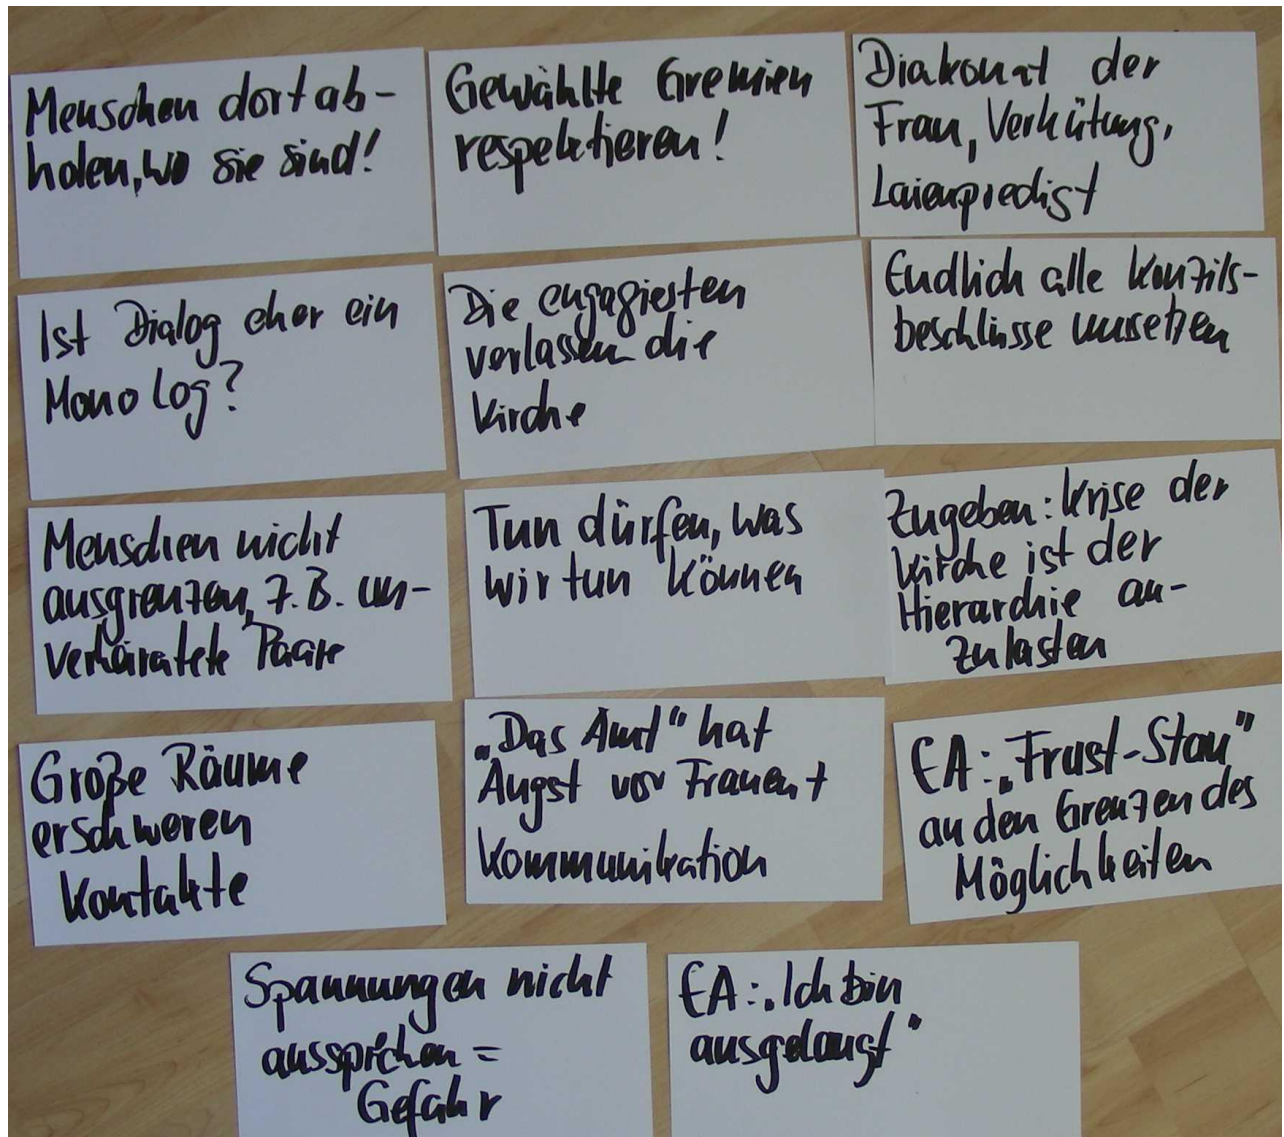 Menschen dort ab-
holen, wo sie sind!
Gewählte Gremien
respektieren!
Diakonat der
Frau, Verhütung,
Laienpredigt
Ist Dialog eher ein
Monolog?
Die engagiesten
verlassen die
Kirche
Endlich alle Konzils-
beschlüsse umsetzen
Menschen nicht
ausgrenzen, z.B. un-
verheiratete Paare
Tun dürfen, was
wir tun können
Zugeben: Krise der
Kirche ist der
Hierarchie an-
zulasten
Große Räume
erschweren
Kontakte
„Das Amt“ hat
Angst vor Frauen +
Kommunikation
EA: „Frust-Stau“
an den Grenzen des
Möglichkeiten
Spannungen nicht
aussprechen =
Gefahr
EA: „Ich bin
ausgelaugt“